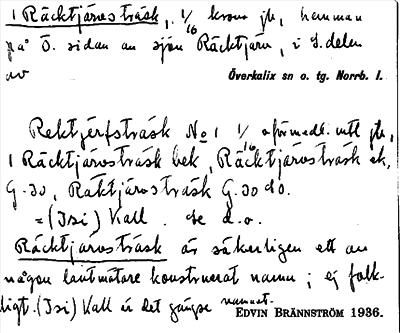 1 Räcktjärvsträsk, 1/16 krono jh, hemman
på Ö. sidan av sjön Räcktjärv, i S. delen
av Överkalix sn o. tg. Norrb. l.
Rektjerfsträsk No 1 1/16 oförmedl. ntl jh,
1 Räcktjärvsträsk bek, Räcktjärvsträsk ek,
G. 30, Räktjärvsträsk G. 30 do.
= (Isi) Kall. Se d. o.
Räcktjärvsträsk är säkerligen ett av
någon lantmätare konstruerat namn; ej folk-
ligt. (Isi) Kall är det gängse namnet.
EDVIN BRÄNNSTRÖM 1936.